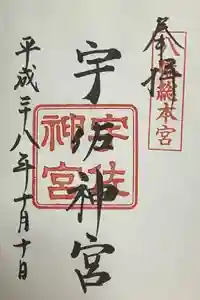 奉拝
八幡総本宮
宇佐神宮
宇佐神宮
平成二十八年十月十日